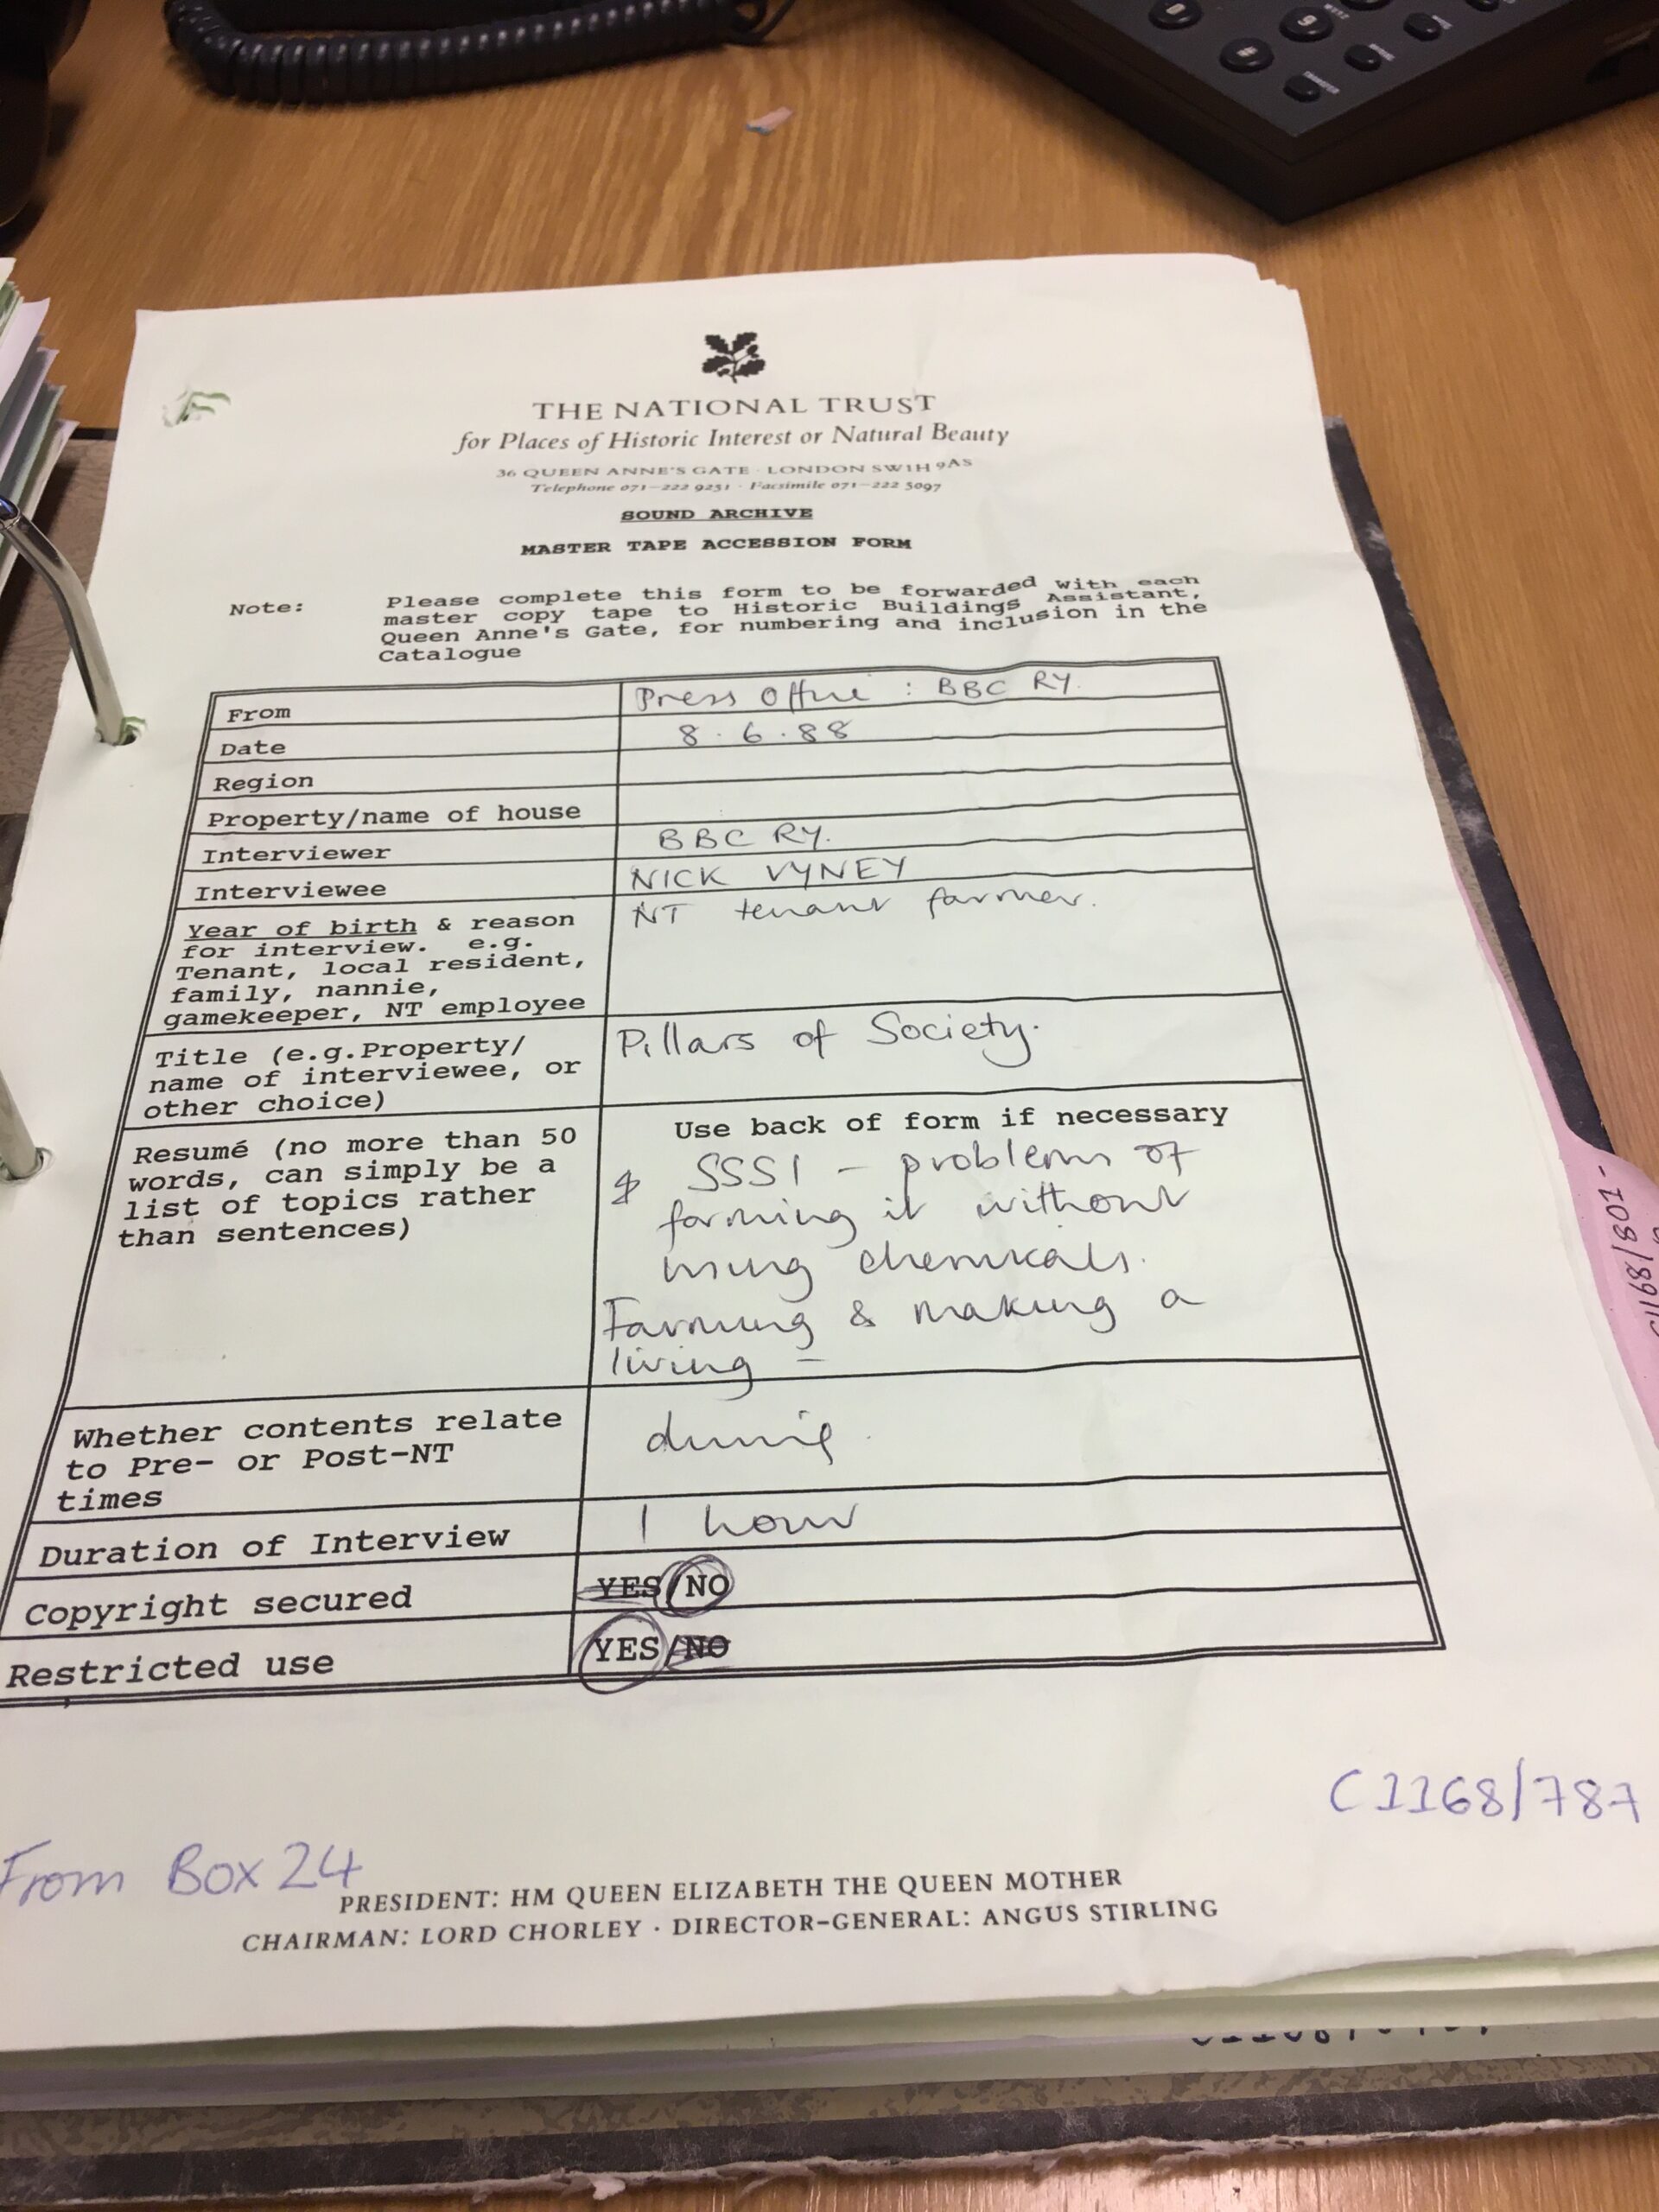 THE NATIONAL TRUST
for Places of Historic Interest or Natural Beauty
36 QUEEN ANNE'S GATE · LONDON SW1H 9AS
Telephone 071-222 9251 · Facsimile 071-222 5097
SOUND ARCHIVE
MASTER TAPE ACCESSION FORM
Note: Please complete this form to be forwarded with each
master copy tape to Historic Buildings Assistant,
Queen Anne's Gate, for numbering and inclusion in the
Catalogue
From Press Office : BBC RY.
Date 8.6.88
Region
Property/name of house
Interviewer BBC RY.
Interviewee NICK VYNEY
Year of birth & reason
for interview. e.g.
Tenant, local resident,
family, nannie,
gamekeeper, NT employee
NT tenant farmer.
Title (e.g.Property/
name of interviewee, or
other choice)
Pillars of Society.
Resumé (no more than 50
words, can simply be a
list of topics rather
than sentences)
Use back of form if necessary
SSSI - problems of
farming it without
using chemicals.
Farming & making a
living -
Whether contents relate
to Pre- or Post-NT
times
during.
Duration of Interview 1 hour
Copyright secured YES/NO
Restricted use YES/NO
C1168/787
From Box 24
PRESIDENT: HM QUEEN ELIZABETH THE QUEEN MOTHER
CHAIRMAN: LORD CHORLEY · DIRECTOR-GENERAL: ANGUS STIRLING
C1168/801-